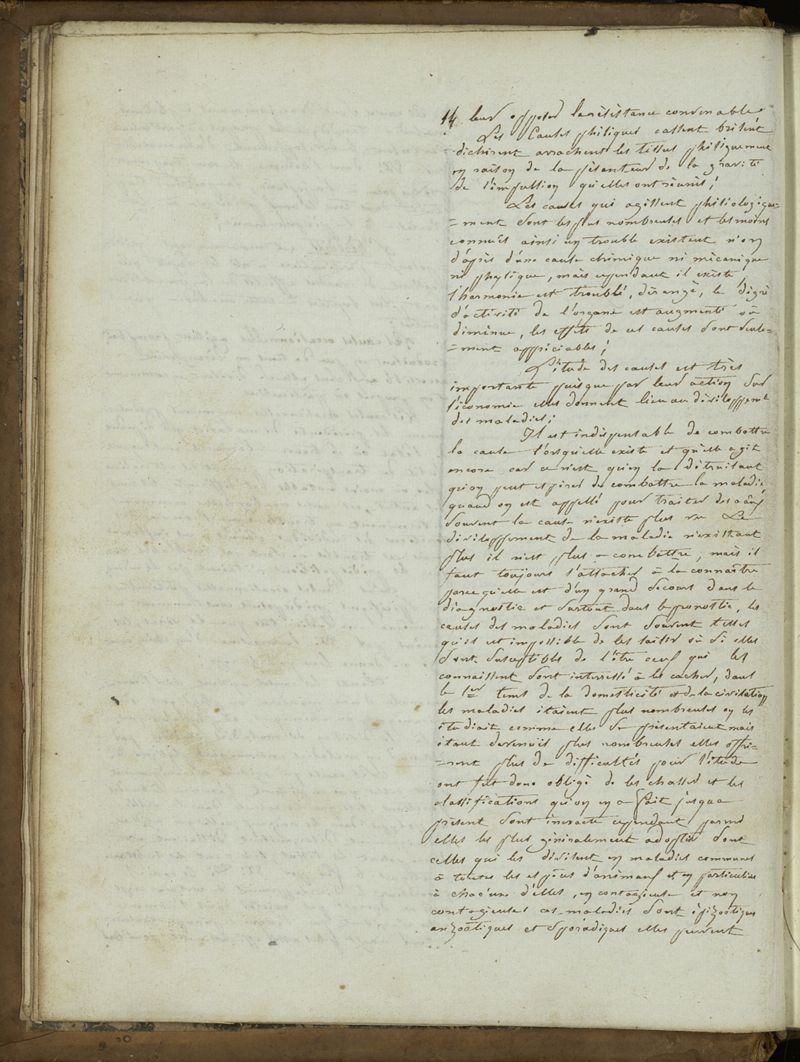 14. leur opposer la résistance convenable
Les Causes phisiques cassent brisent
dichirent arrachent les tissus phisiquement
en raison de la pésanteur de la gravité
de l'impulsion qu'elles ont réunies;
Les causes qui agissent phisiologique-
=ment sont les plus nombreuses et les moins
connues ainsi un trouble existent n'en
d'apès d'une cause chimique ni mécanique
ni physique, mais cependant il existe
l'harmonie est troublé, dérangé, le dégré
d'activité de l'organe est augmenté où
diminue, les effets de ces causes sont seule-
=ment appréciables;
L'étude des causes est très
importante puisque par leur action sur
l'économie elles donnent lieu au développemt
des maladies;
Il est indispensable de combattre
la cause l'orsqu'elle existe et qu'elle agit
encore car ce n'est qu'en la détruisant
qu'on peut espérer de combattre la maladie
quand on est appellé pour traiter des
souvent la cause n'existe plus Le
développement de la maladie n'existant
plus il n'est plus a combattre, mais il
faut toujours s'attacher à la connaître
parcequ'elle est d'un grand secours dans le
diagnostic et surtout dans le pronostic, les
causes des maladies sont souvent telles
qu'il est impossible de les saisir où si elles
sont susceptibles de l'être ceux qui les
connaissent sont interressé à les cacher, dans
le 1er tems de la domesticité et de la civilisation
les maladies étaient plus nombreuses on les
étudiait comme elles se présentaient mais
étant devenues plus nombreuses elles offri-
=rent plus de difficultés pour l'étude
ont fut donc obligé de les classer et les
classifications qu'on en a fait jusqua
présent sont inexacte cependant parmi
elles les plus généralement adoptés sont
celles qui les divisent en maladies communes
à toutes les espèces d'animaux et en particulier
à chac'une d'elles, en contagieuse et non
contagieuses ces maladies sont épizootiques
enzootiques et sporadiques elles peuvent